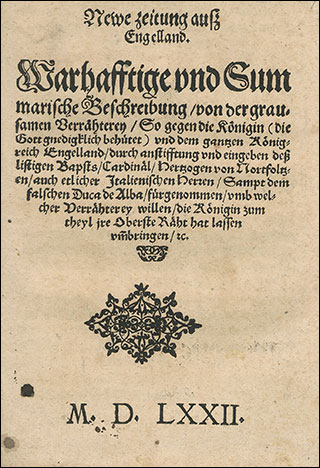 Newe zeitung ausz
Engelland.
Warhafftige vnd Sum
marische Beschreibung / von der grau-
samen Verrähterey / So gegen die Königin (die
Gott gnedigklich behütet) vnd dem gantzen König-
reich Engelland / durch anstifftung vnd eingeben deß
listigen Bapsts / Cardinäl / Hertzogen von Nortfoltz-
en / auch etlicher Italienischen Herren / Sampt dem
falschen Duca de Alba / fürgenommen / vmb wel-
cher Verrähterey willen / die Königin zum
theyl jre Oberste Räht hat lassen
vm̃bringen / ꝛc.
M. D. LXXII.